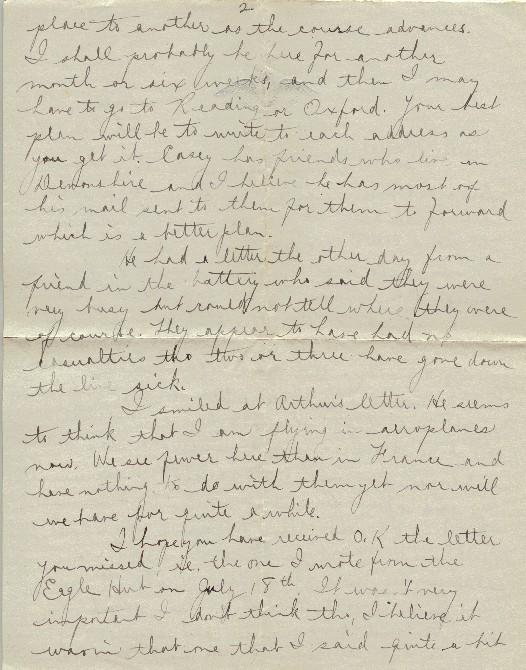 2
place to another as the course advances.
I shall probably be here for another
month or six weeks, and then I may
have to go to Reading or Oxford. Your best
plan will be to write to each address as
you get it. Casey has friends who live in
Devonshire and I believe he has most of
his mail sent to them for them to forward
which is a better plan.
He had a letter the other day from a
friend in the battery who said they were
very busy but could not tell where they were
of course. They appear to have had no
casualties tho two or three have gone down
the line sick.
I smiled at Arthur's letter. He seems
to think that I am flying in aeroplanes
now. We see fewer here than in France and
have nothing to do with them yet nor will
we have for quite a while.
I hope you have received O.K the letter
you missed i.e. the one I wrote from the
Eagle Hut on July 18th It wasn't very
important I don't think tho, I believe it
was in that one that I said quite a bit